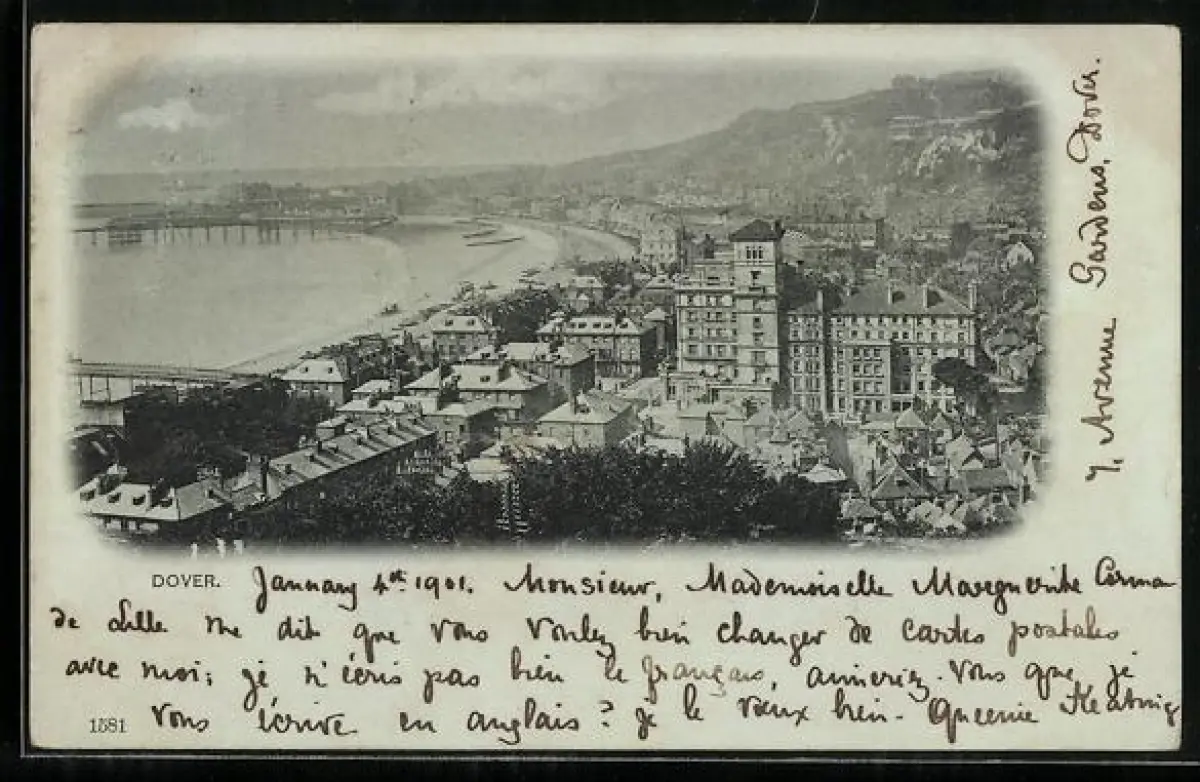 DOVER.
January 4st 1901. Monsieur, Mademoiselle Marguerite
de Lille me dit que vous voulez bien changer de cartes postales
avec moi; je n'écris pas bien le français, aimeriez-vous que je
vous écrive en anglais? je le veux bien- Queenie Keating
1581
7, Avenue Gardens, Dover.